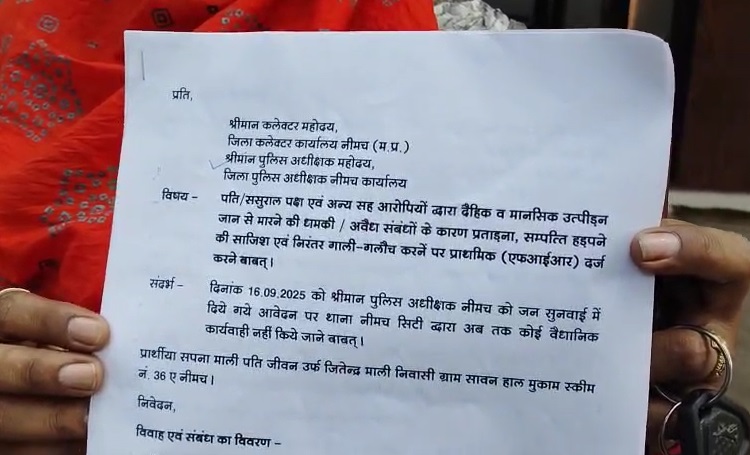 प्रति,
श्रीमान कलेक्टर महोदय,
जिला कलेक्टर कार्यालय नीमच (म.प्र.)
श्रीमान पुलिस अधीक्षक महोदय,
जिला पुलिस अधीक्षक नीमच कार्यालय
विषय – पति/ससुराल पक्ष एवं अन्य सह आरोपियों द्वारा दैहिक व मानसिक उत्पीड़न
जान से मारने की धमकी / अवैध संबंधों के कारण प्रताड़ना, सम्पत्ति हड़पने
की साजिश एवं निरंतर गाली-गलौच करनें पर प्राथमिक (एफआईआर) दर्ज
करने बाबत्।
संदर्भ – दिनांक 16.09.2025 को श्रीमान पुलिस अधीक्षक नीमच को जन सुनवाई में
दिये गये आवेदन पर थाना नीमच सिटी द्वारा अब तक कोई वैधानिक
कार्यवाही नहीं किये जाने बाबत्।
प्रार्थीया सपना माली पति जीवन उर्फ जितेन्द्र माली निवासी ग्राम सावन हाल मुकाम स्कीम
नं. 36 ए नीमच।
निवेदन,
विवाह एवं संबंध का विवरण –